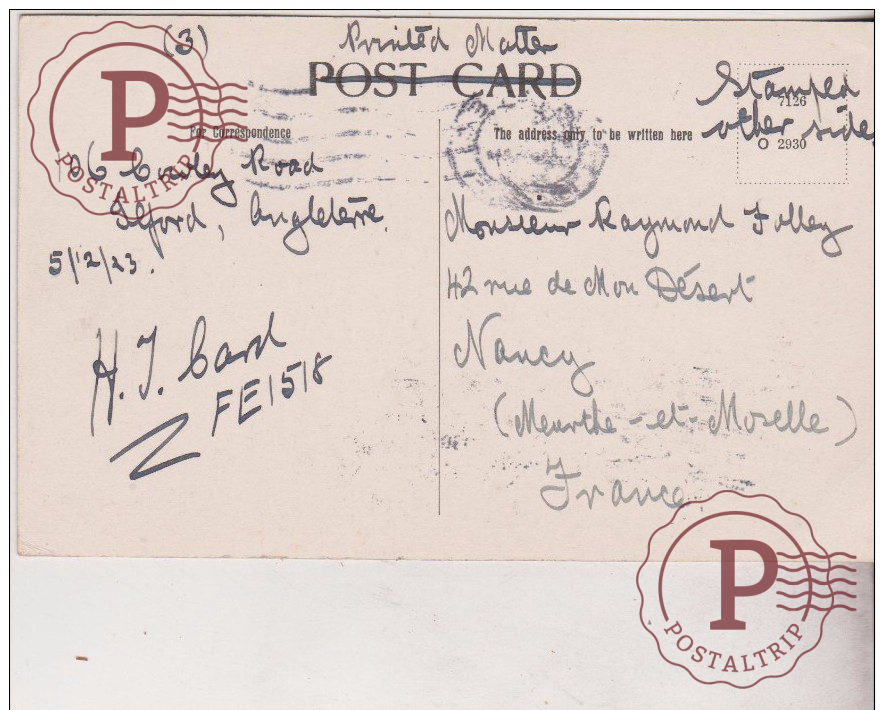 (3) Printed Matter
POST CARD
Stamped
7126
other side
O 2930
For Correspondence
The address only to be written here
Road
Ilford, Angleterre.
5/12/23.
H. J. Card
FE1518
Monsieur Raymond Folley
42 rue de Mon Désert
Nancy
(Meurthe-et-Moselle)
France
P
POSTALTRIP
P
POSTALTRIP